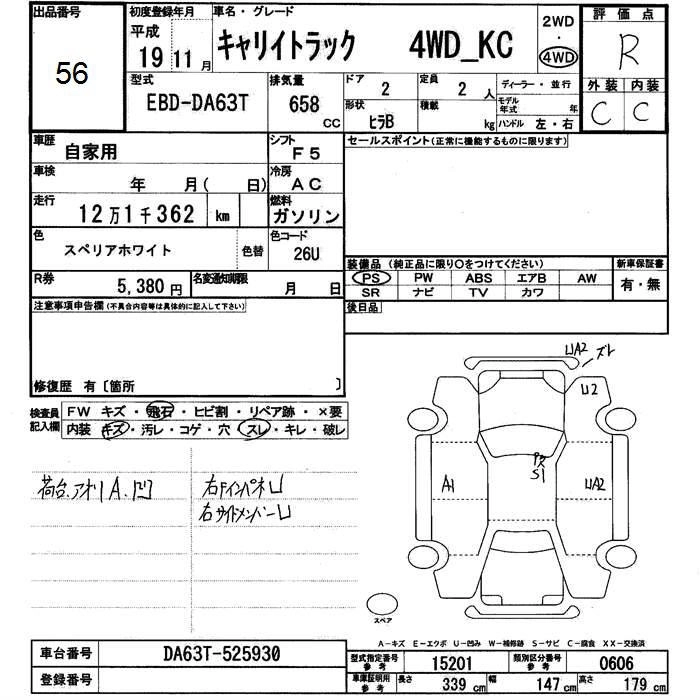 出品番号
56
初度登録年月
平成
19年 11月
車名・グレード
キャリイトラック 4WD_KC
2WD
・
4WD
評価点
R
外装 内装
C C
型式
EBD-DA63T
排気量
658 CC
ドア
2
定員
2 人
形状
ﾋﾗB
積載
kg
ディーラー・並行
モデル年式 年
ハンドル 左・右
車歴
自家用
シフト
F5
車検
年 月( 日)
冷房
AC
走行
12万1千362 km
燃料
ガソリン
色
スペリアホワイト
色替
色コード
26U
R券
5,380 円
名変通知期限
月 日
セールスポイント(正常に機能するものに限ります)
装備品 (純正品に限り○をつけてください)
PS PW ABS エアB AW
SR ナビ TV カワ
新車保証書
有・無
後日品
注意事項申告欄(不具合内容等は具体的に記入して下さい)
修復歴 有〔箇所 〕
検査員記入欄
FW キズ・飛石・ヒビ割・リペア跡・×要
内装 キズ・汚レ・コゲ・穴・スレ・キレ・破レ
荷台、アオリA、凹
右FインパネU
右サイドメンバーU
UA2 ズレ
U2
A1
UA2
S1
スペア
A-キズ E-エクボ U-凹み W-補修跡 S-サビ C-腐食 XX-交換済
車台番号
DA63T-525930
登録番号
型式指定番号 参考
15201
類別区分番号 参考
0606
車庫証明用 参考
長さ 339 cm 幅 147 cm 高さ 179 cm